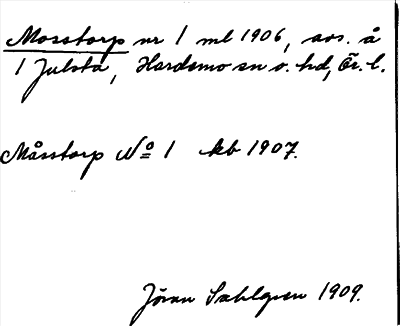 Mosstorp nr 1 ml 1906, avs. å
1 Julsta, Hardemo sn o. hd, Ör. l.
Måsstorp No 1 kb 1907.
Jöran Sahlgren 1909.